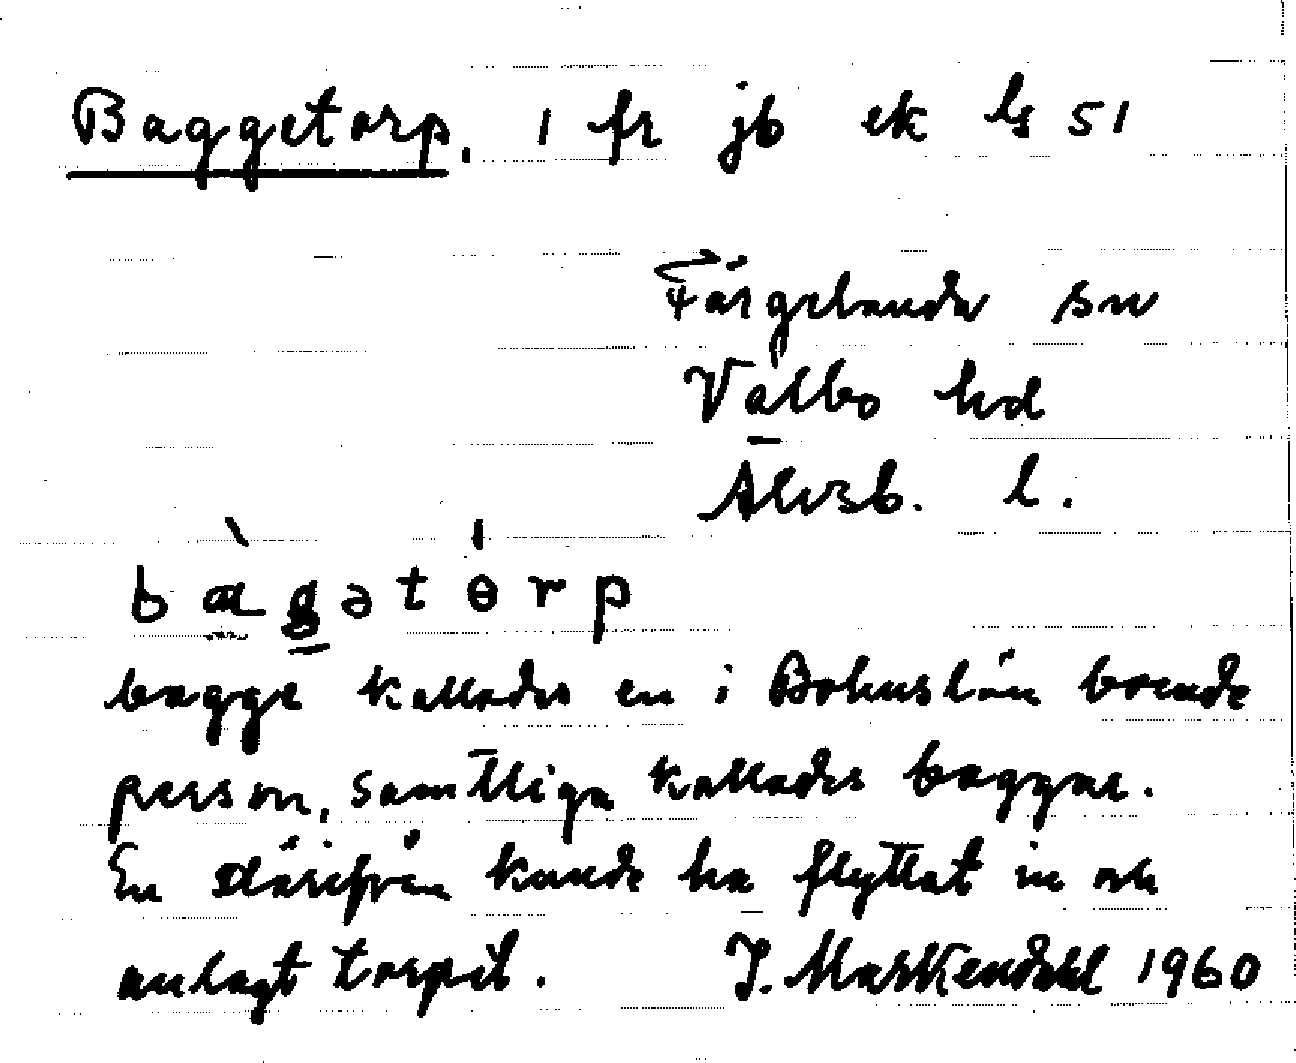 Baggetorp. 1 fr jb ek ls 51
Färgelanda sn
Valbo hd
Älvsb. l.
bàgətɵ́rp
bagge kallades en i Bohuslän boende
person, samtliga kallades baggar.
En därifrån kunde ha flyttat in och
anlagt torpet. J. Markendahl 1960